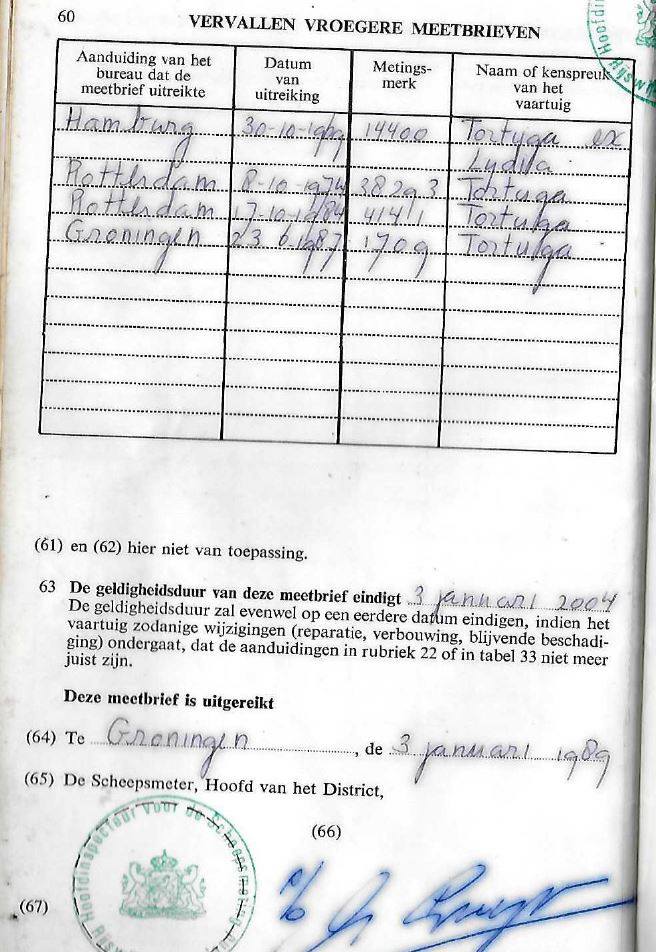 60 VERVALLEN VROEGERE MEETBRIEVEN
Aanduiding van het bureau dat de meetbrief uitreikte | Datum van uitreiking | Metings-merk | Naam of kenspreuk van het vaartuig
Hamburg 30-10-1969 14400 Tortuga ex
Lydila
Rotterdam 8-10-1974 38293 Tortuga
Rotterdam 17-10-1984 41411 Tortuga
Groningen 23 6 1987 1709 Tortuga
(61) en (62) hier niet van toepassing.
63 De geldigheidsduur van deze meetbrief eindigt 3 januari 2004
De geldigheidsduur zal evenwel op een eerdere datum eindigen, indien het
vaartuig zodanige wijzigingen (reparatie, verbouwing, blijvende beschadi-
ging) ondergaat, dat de aanduidingen in rubriek 22 of in tabel 33 niet meer
juist zijn.
Deze meetbrief is uitgereikt
(64) Te Groningen, de 3 januari 1989
(65) De Scheepsmeter, Hoofd van het District,
(66)
(67)
Hoofdinspecteur voor de Scheepsmeting